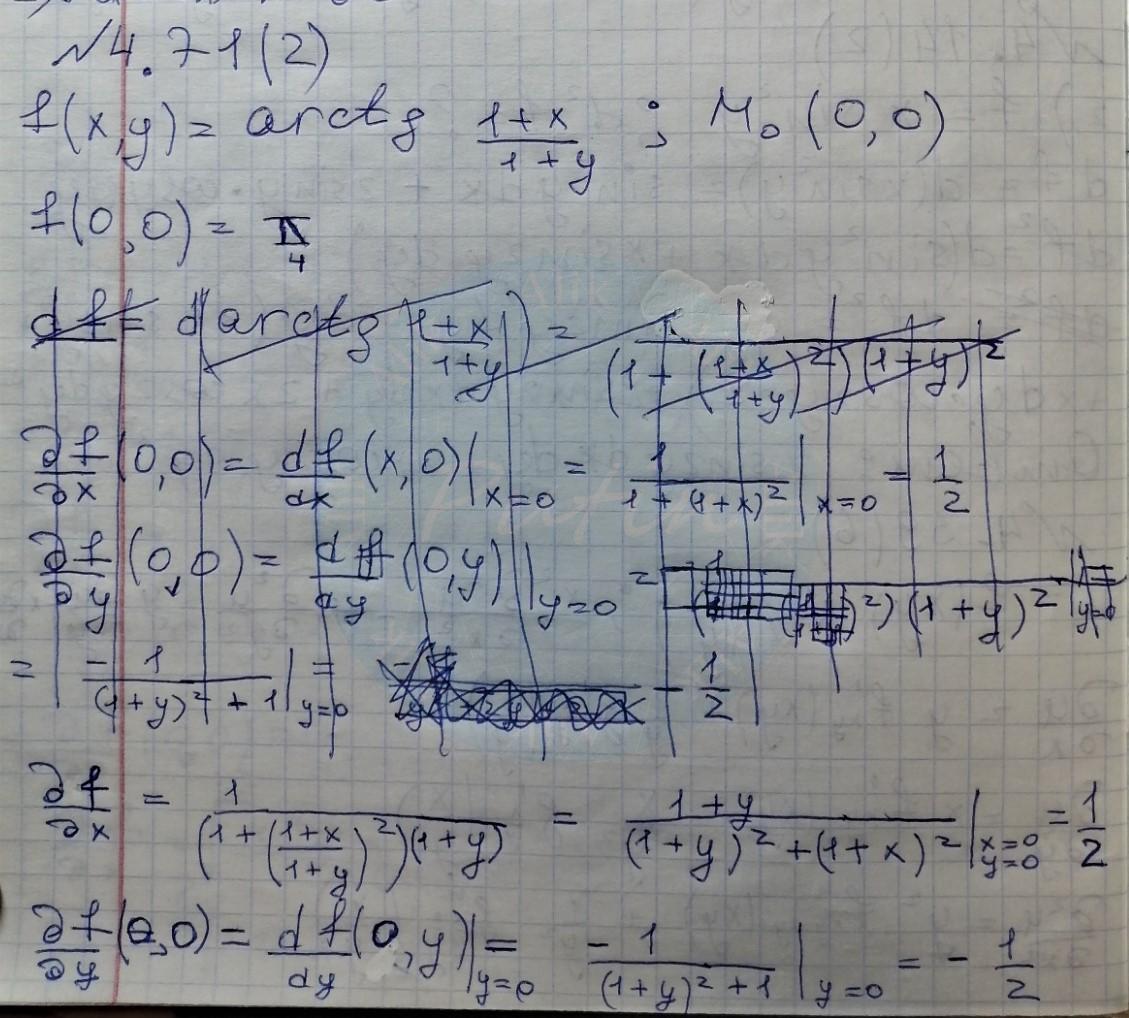 №4.71(2)
f(x,y) = arctg (1+x)/(1+y) ; M₀(0,0)
f(0,0) = π/4
df = d(arctg (1+x)/(1+y)) = /((1+((1+x)/(1+y))²)(1+y)²
∂f/∂x (0,0) = df/dx (x,0)|x=0 = 1/(1+(1+x)²)|x=0 = 1/2
∂f/∂y (0,0) = df/dy (0,y)|y=0 = (1+y)²|y=0 =
= -1/((1+y)²+1)|y=0 = -1/2
∂f/∂x = 1/((1+((1+x)/(1+y))²)(1+y)) = (1+y)/((1+y)²+(1+x)²)|x=0 y=0 = 1/2
∂f/∂y (0,0) = df/dy (0,y)|y=0 = -1/((1+y)²+1)|y=0 = -1/2